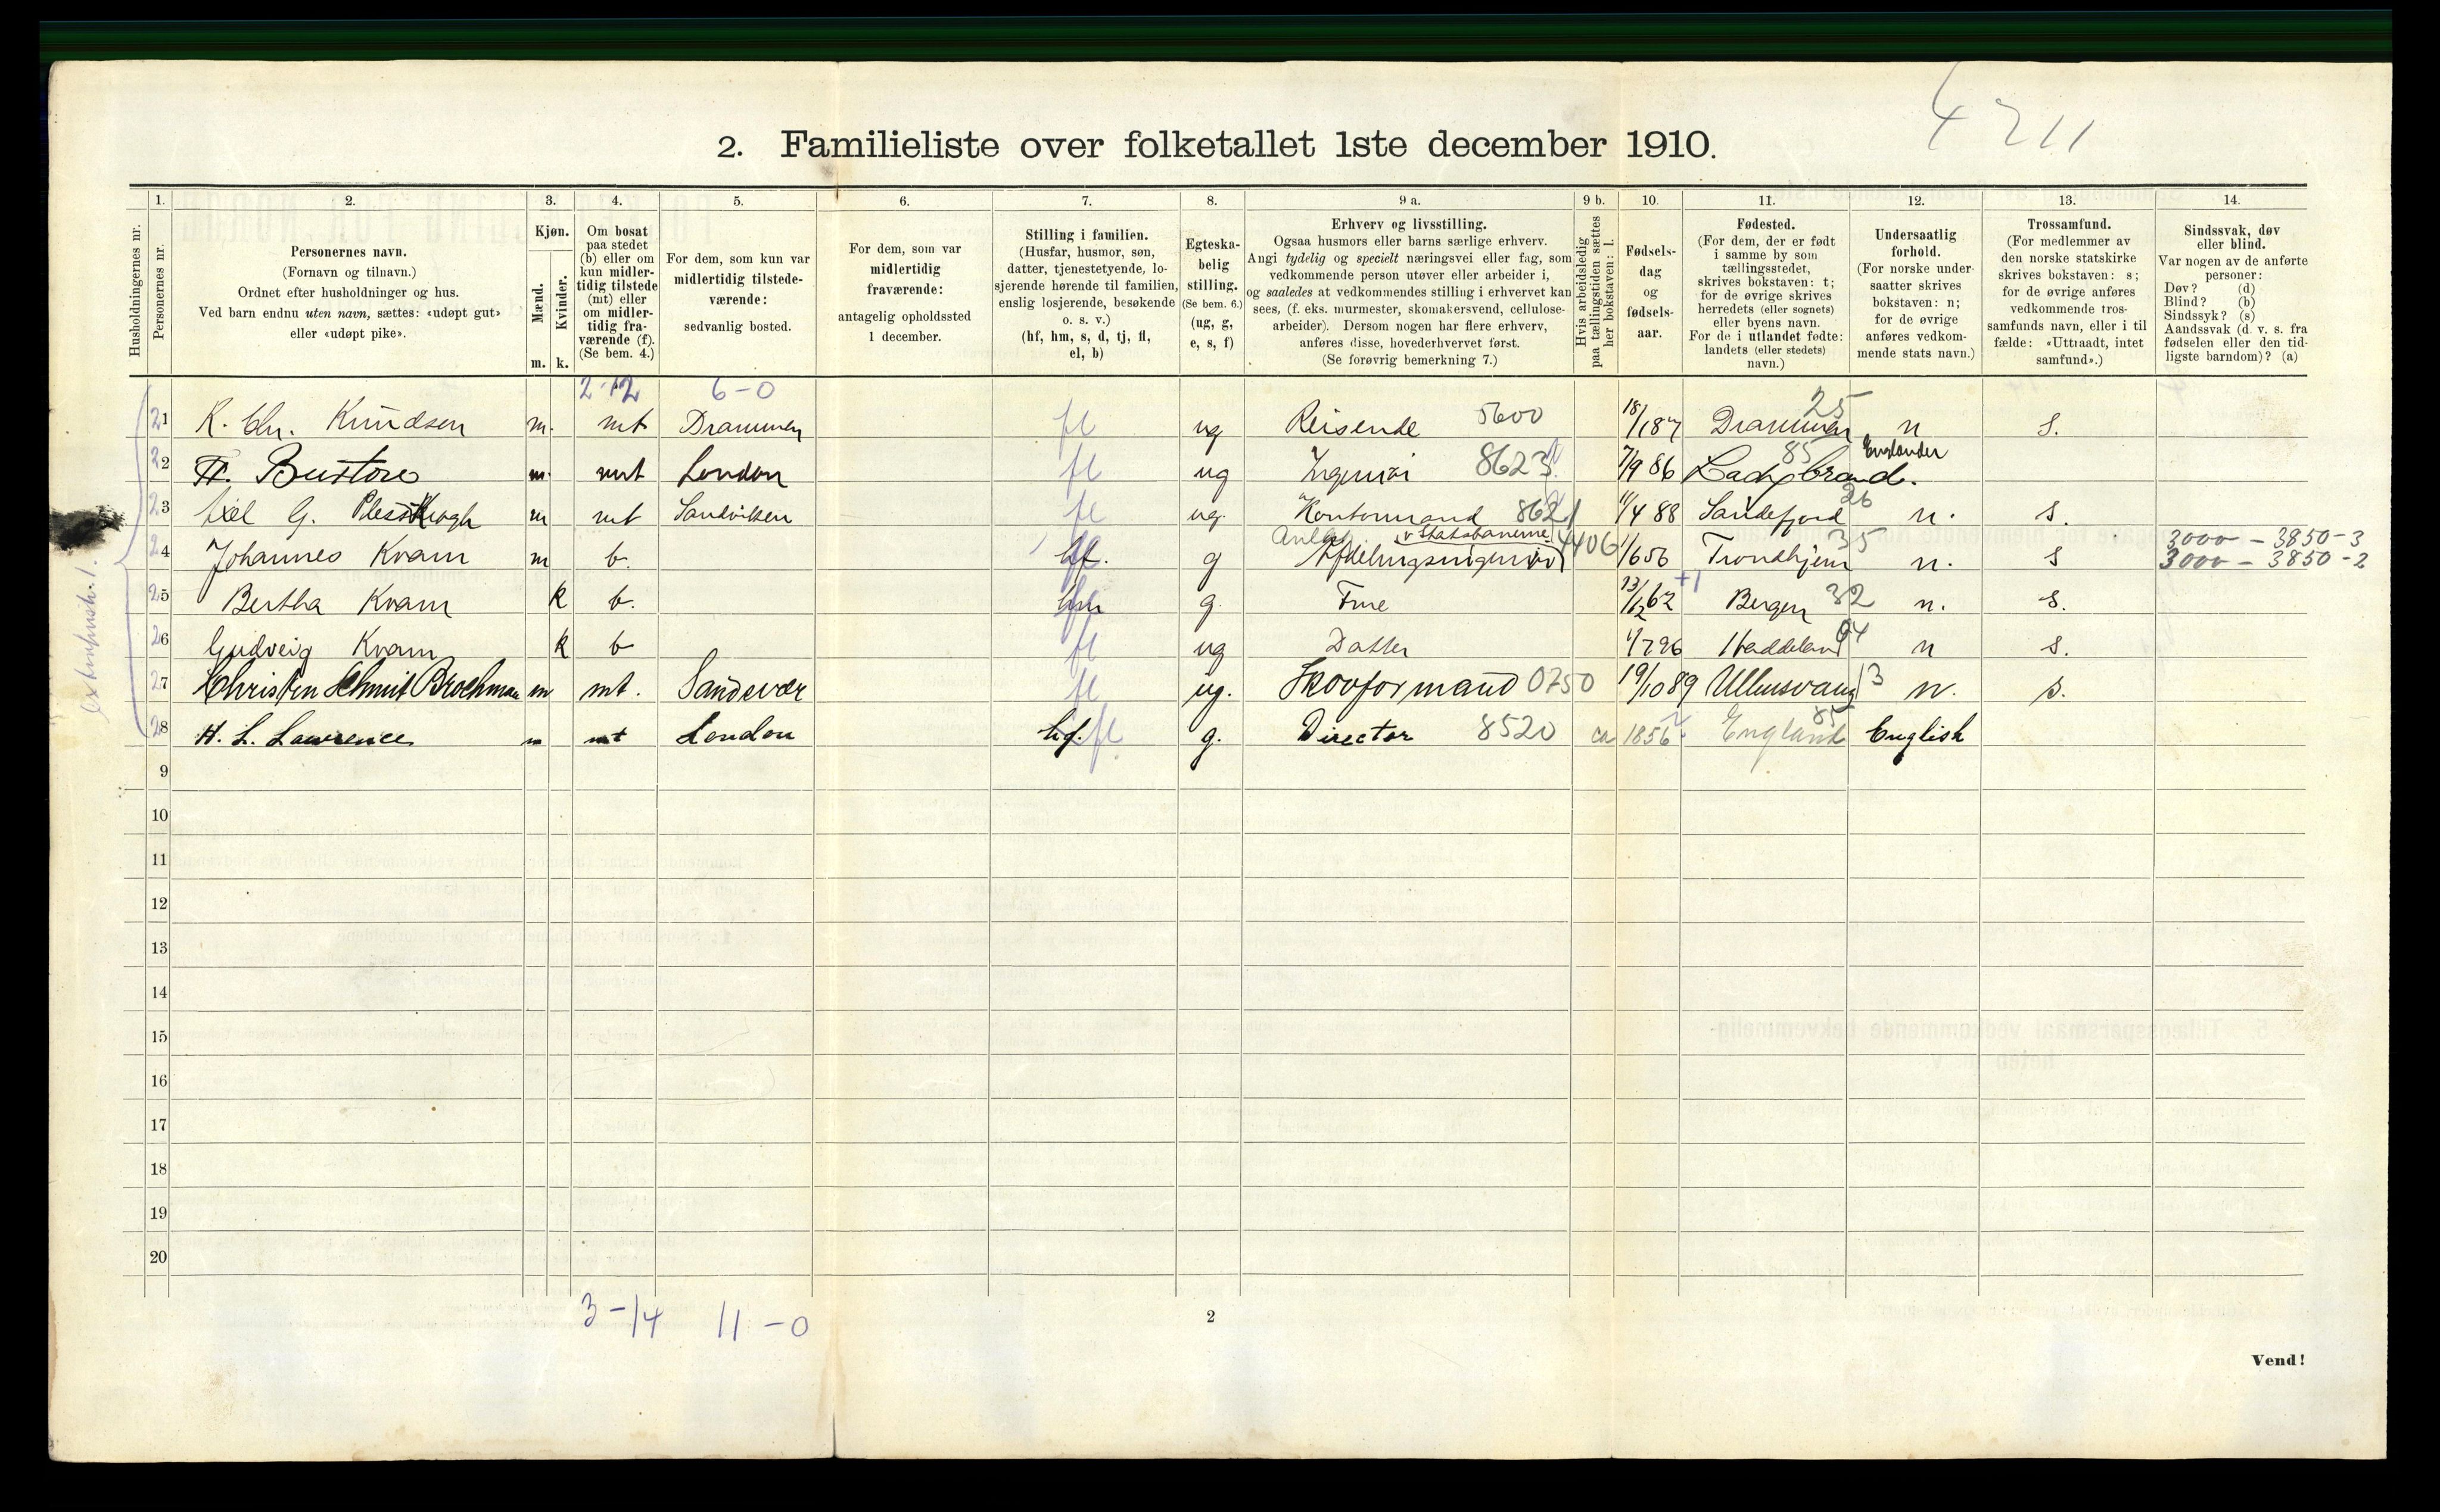 4211
2. Familieliste over folketallet 1ste december 1910.
1. 2. 3. 4. 5. 6. 7. 8. 9 a. 9 b. 10. 11. 12. 13. 14.
Husholdningernes nr.
Personernes nr.
Personernes navn.
(Fornavn og tilnavn.)
Ordnet efter husholdninger og hus.
Ved barn endnu uten navn, sættes: «udøpt gut»
eller «udøpt pike».
Kjøn.
Mænd.
Kvinder.
m. k.
Om bosat
paa stedet
(b) eller om
kun midler-
tidig tilstede
(mt) eller
om midler-
tidig fra-
værende (f).
(Se bem. 4.)
For dem, som kun var
midlertidig tilstede-
værende:
sedvanlig bosted.
For dem, som var
midlertidig
fraværende:
antagelig opholdssted
1 december.
Stilling i familien.
(Husfar, husmor, søn,
datter, tjenestetyende, lo-
sjerende hørende til familien,
enslig losjerende, besøkende
o. s. v.)
(hf, hm, s, d, tj, fl,
el, b)
Egteska-
belig
stilling.
(Se bem. 6.)
(ug, g,
e, s, f)
Erhverv og livsstilling.
Ogsaa husmors eller barns særlige erhverv.
Angi tydelig og specielt næringsvei eller fag, som
vedkommende person utøver eller arbeider i,
og saaledes at vedkommendes stilling i erhvervet kan
sees, (f. eks. murmester, skomakersvend, cellulose-
arbeider). Dersom nogen har flere erhverv,
anføres disse, hovederhvervet først.
(Se forøvrig bemerkning 7.)
Hvis arbeidsledig
paa tællingstiden sættes
her bokstaven: l.
Fødsels-
dag
og
fødsels-
aar.
Fødested.
(For dem, der er født
i samme by som
tællingsstedet,
skrives bokstaven: t;
for de øvrige skrives
herredets (eller sognets)
eller byens navn.
For de i utlandet fødte:
landets (eller stedets)
navn.)
Undersaatlig
forhold.
(For norske under-
saatter skrives
bokstaven: n;
for de øvrige
anføres vedkom-
mende stats navn.)
Trossamfund.
(For medlemmer av
den norske statskirke
skrives bokstaven: s;
for de øvrige anføres
vedkommende tros-
samfunds navn, eller i til
fælde: «Uttraadt, intet
samfund».)
Sindssvak, døv
eller blind.
Var nogen av de anførte
personer:
Døv? (d)
Blind? (b)
Sindssyk? (s)
Aandssvak (d. v. s. fra
fødselen eller den tid-
ligste barndom)? (a)
2-12 6-0
21 K. Chr. Knudsen m. mt Drammen fl ug Reisende 5600 Drammen 25 n s.
22 m. mt London fl ug 8623 7/9 86 85 Englænder
23 Axel G. m mt Sandviken fl ug. Kontormand 8621 11/4 88 Sandefjord 26 n. s.
24 Johannes Kvam m b. hf. g Afdelingsingeniør v Statsbanerne 4406 1/6 56 Trondhjem 35 n. s 3000 - 3850 - 3
3000 - 3850 - 2
25 Bertha Kvam k b. hm g. Frue 62 Bergen 32 n. s.
26 Gudveig Kvam k b fl ug Datter 96 Haddeland 04 n s.
27 Christen Schmit Brochman m mt. Sandsvær fl ug. Skovformand 0750 19/10 89 Ullensvang 13 n. s.
28 H. L. Lawrence m mt London hf. fl g. Director 8520 ca 1856 England 85 English
9
10
11
12
13
14
15
16
17
18
19
20
3-14 11-0
2
Vend!